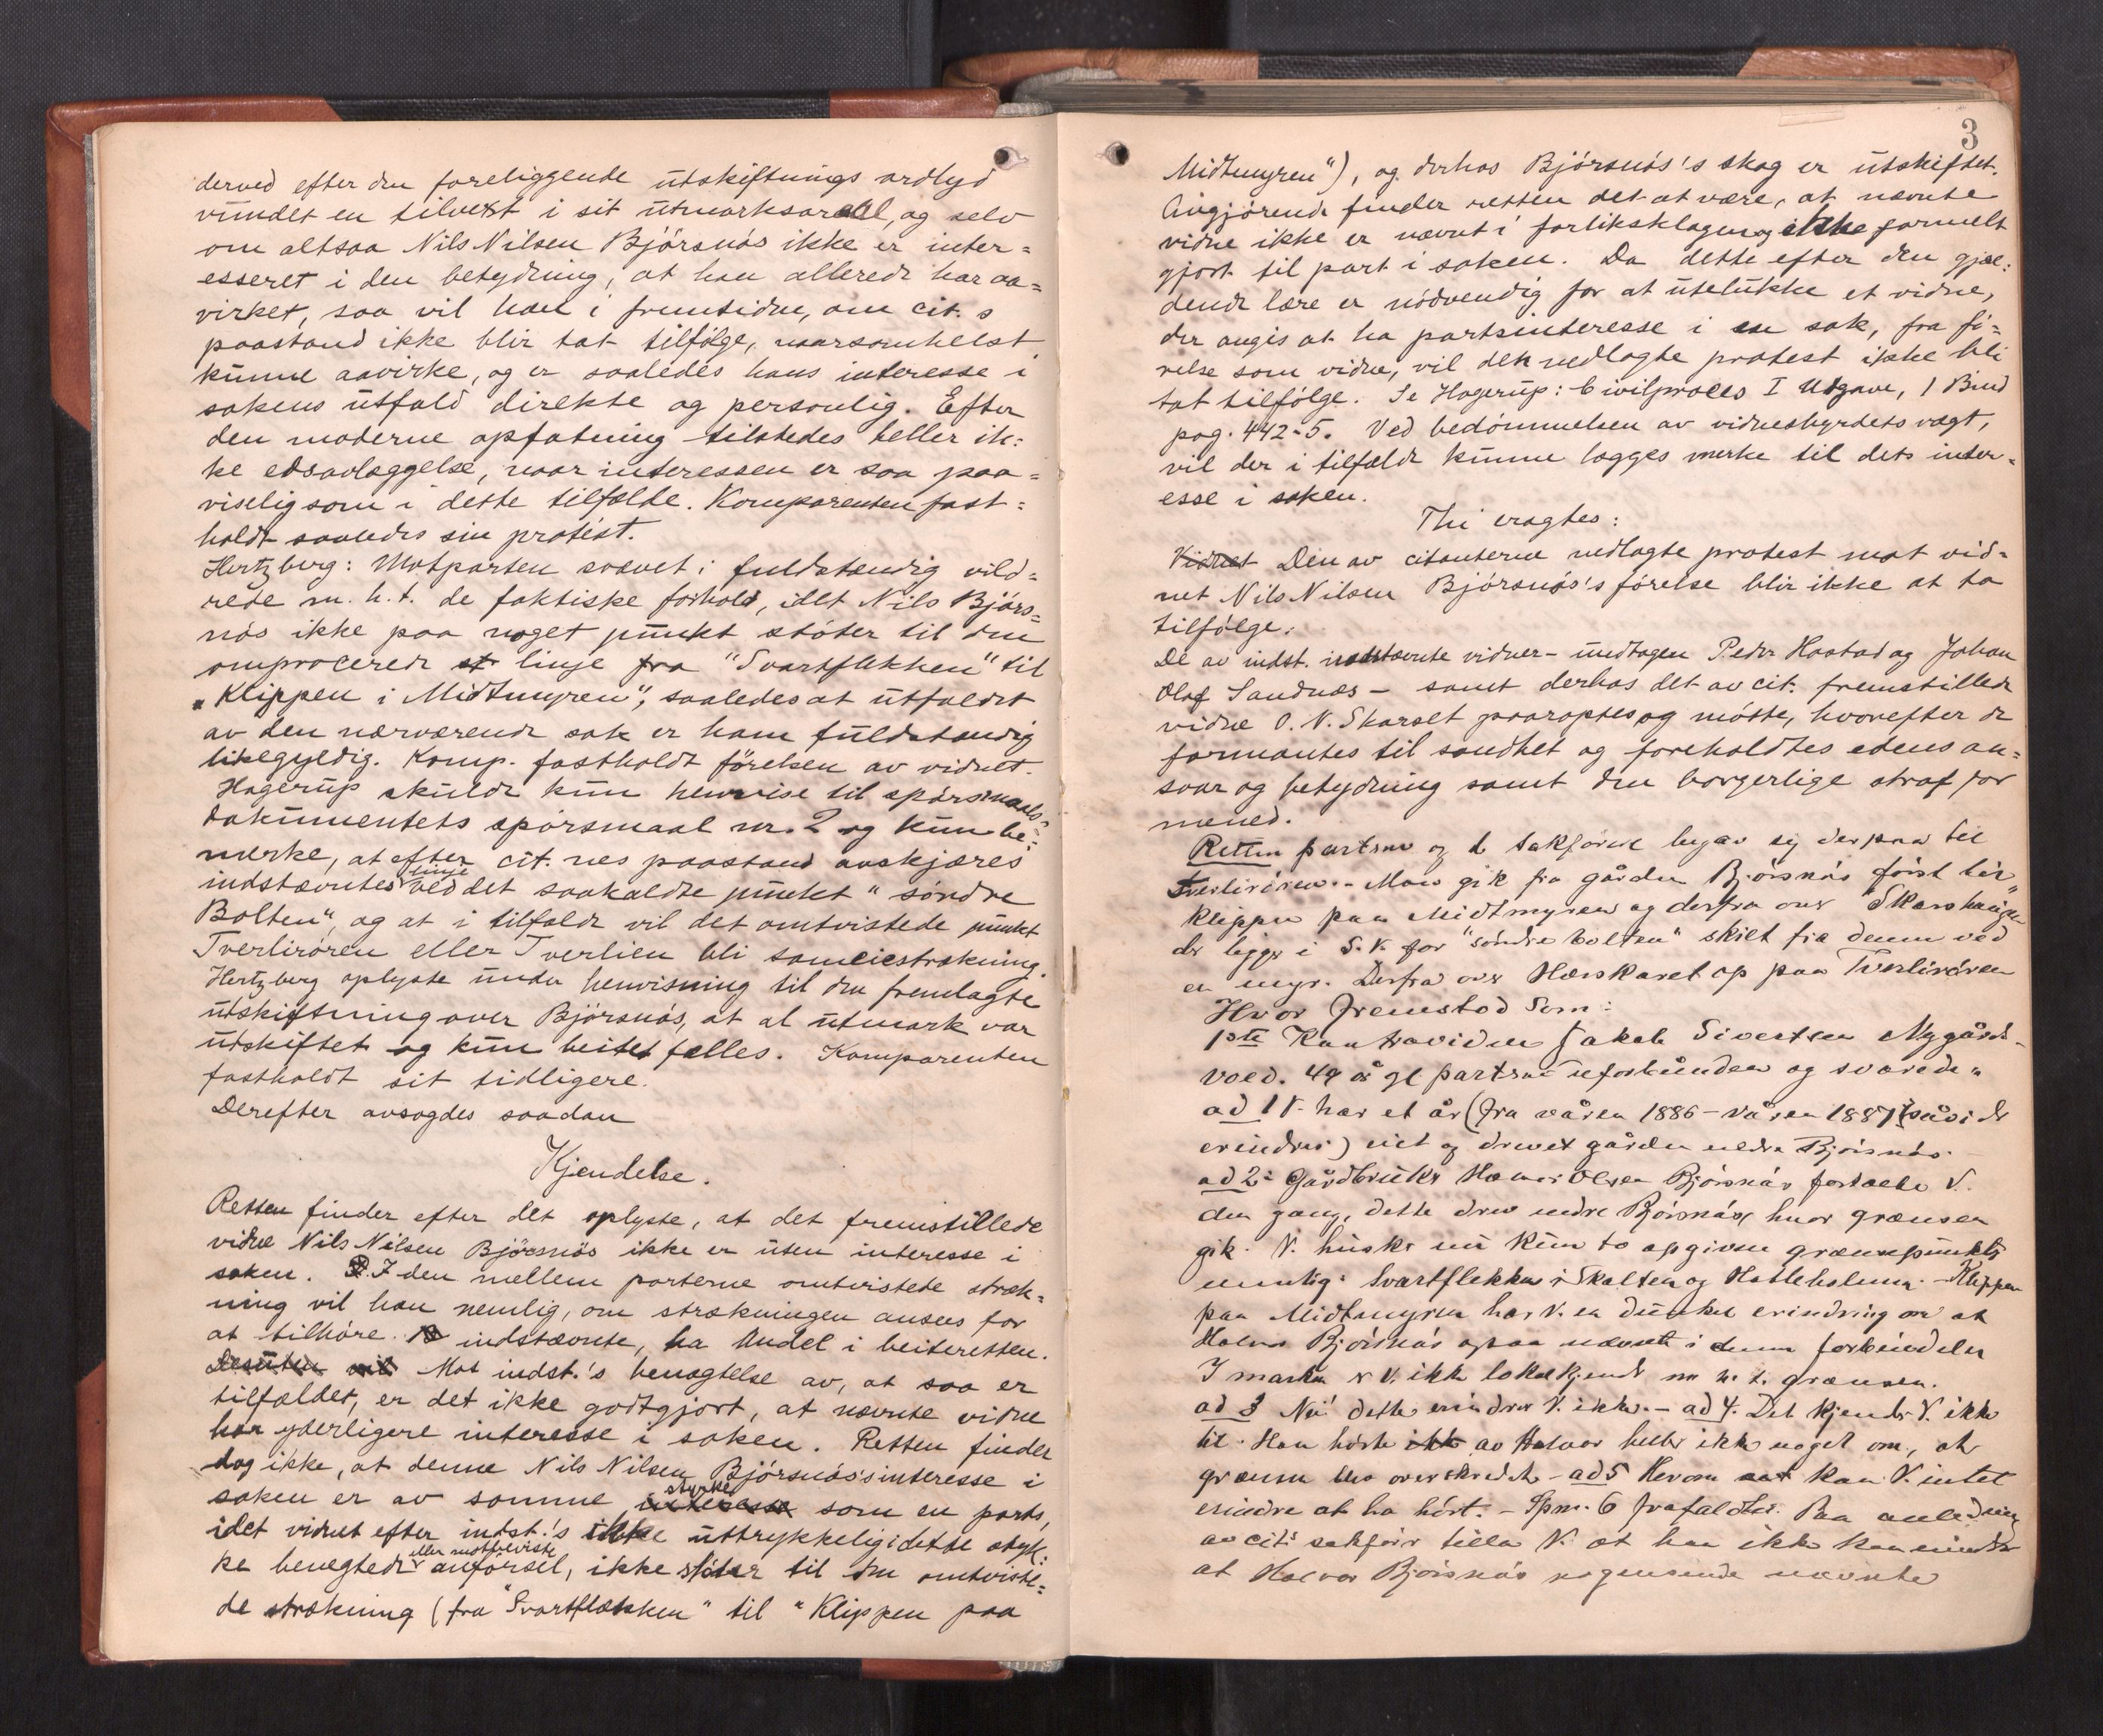 derved efter den foreliggende utskiftnings ordlyd
vundet en tilvekst i sit utmarksareal, og selv
om altsaa Nils Nilsen Bjørsnøs ikke er inter=
esseret i den betydning, at han allerede har aa=
virket, saa vil han i fremtiden, om cit.s
paastand ikke blir tat tilfølge, naarsomhelst
kunne aavirke, og er saaledes hans interesse i
sakens utfald direkte og personlig. Efter
den moderne opfatning tilstedes heller ik=
ke edsavlæggelse, naar interessen er saa paa=
viselig som i dette tilfælde. Komparenten fast=
holdt saaledes sin protest.
Hertzberg: Motparten svævet i fuldstændig vild=
rede m. h. t. de faktiske forhold, idet Nils Bjørs=
nøs ikke paa noget punkt støter til den
omprocederte linje fra "Svartflekken" til
"Klippen i Midtmyren", saaledes at utfaldet
av den nærværende sak er ham fuldstændig
likegyldig. Komp. fastholdt førelsen av vidnet.
Hagerup skulde kun henvise til spørsmaals=
dokumentets spørsmaal nr. 2 og kun be=
merke, at efter cit.nes paastand avskjæres
indstævntes linje ved det saakaldte punktet "søndre
Bolten", og at i tilfælde vil det omtvistede punkt
Tverlirøren eller Tverlien bli sameiestrækning.
Hertzberg oplyste under henvisning til den fremlagte
utskiftning over Bjørsnøs, at al utmark var
utskiftet og kun beitet fælles. Komparenten
fastholdt sit tidligere.
Derefter avsagdes saadan
Kjendelse.
Retten finder efter det oplyste, at det fremstillede
vidne Nils Nilsen Bjørsnøs ikke er uten interesse i
saken. I den mellem parterne omtvistede stræk=
ning vil han nemlig, om strækningen ansees for
at tilhøre indstævnte, ha Andel i beiteretten.
Desuten vil Mot indst.'s benægtelse av, at saa er
tilfældet, er det ikke godtgjort, at nævnte vidne
har yderligere interesse i saken. Retten finder
dog ikke, at denne Nils Nilsen Bjørsnøs's interesse i
saken er av samme interesse styrke som en parts,
idet vidnet efter indst.'s ikke uttrykkelig i dette styk=
ke benegtede eller motbeviste anførsel, ikke støter til den omtviste=
de strækning (fra "Svartflækken" til "Klippen paa
3
Midtmyren"), og derhos Bjørsnøs's skog er utskiftet.
Avgjørende finder retten det at være, at nævnte
vidne ikke er nævnt i forliksklagen og ikke formelt
gjort til part i saken. Da dette efter den gjæl=
dende lære er nødvendig for at utelukke et vidne,
der angis at ha partsinteresse i en sak, fra fø=
relse som vidne, vil den nedlagte protest ikke bli
tat tilfølge. Se Hagerup: Civilproces I Utgave, 1 Bind
pag. 442-5. Ved bedømmelsen av vidnesbyrdets vægt,
vil der i tilfælde kunne lægges merke til dets inter=
esse i saken.
Thi eragtes:
Vidnet Den av citanterne nedlagte protest mot vid=
net Nils Nilsen Bjørsnøs's førelse blir ikke at ta
tilfølge.
De av indst. indstævnte vidner - undtagen Peder Haatad og Johan
Olaf Sandnæs - samt derhos det av cit. fremstillede
vidne O. N. Skarset paaroptes og møtte, hvorefter de
formantes til sandhet og foreholdtes edens an=
svar og betydning samt den borgerlige straf for
mened.
Retten partene og de sakførere begav sig derpaa til
Tverlirøren. - Man gik fra gården Bjørsnøs først til
Klippen paa Midtmyren og derfra over "Skarshaugen"
der ligger i S.V. for "søndre bolten" skilt fra denne ved
en myr. Derfra over Hærskaret op paa Tverlirøren
Hvor fremstod som:
1ste Kontravidne Jakob Sivertsen Nygårds-
vold. 49 år gl. partene uforbunden og svarede:
ad 1 V. har et år (fra våren 1886 - våren 1887 såvidt
erindres) eiet og drevet gården nedre Bjørsnøs.
ad 2: Gårdbruker Halvor Olsen Bjørsnøs fortalte V.
den gang, dette drev nedre Bjørsnøs hvor grænsen
gik. V. husker nu kun to opgivne grænsepunkter
nemlig: Svartflekken i Skalten og Hatleholmen. - Klippen
paa Midtmyren har V. en dunkel erindring om at
Halvor Bjørsnøs ogsaa nævnte i denne forbindelse
I marken er V. ikke lokalkjendt m. h. t. grænsen.
ad 3 Nei dette erindrer V. ikke. - ad 4. Det kjender V. ikke
til. Han hørte ikke av Halvor heller ikke noget om, at
grænsen blev overskredet - ad 5 Herom kan V. intet
erindre at ha hørt. - Spm. 6 frafaldtes. Paa anledning
av cit.s sakfører tilla V. at han ikke kan erindre
at Halvor Bjørsnøs nogensinde nævnte